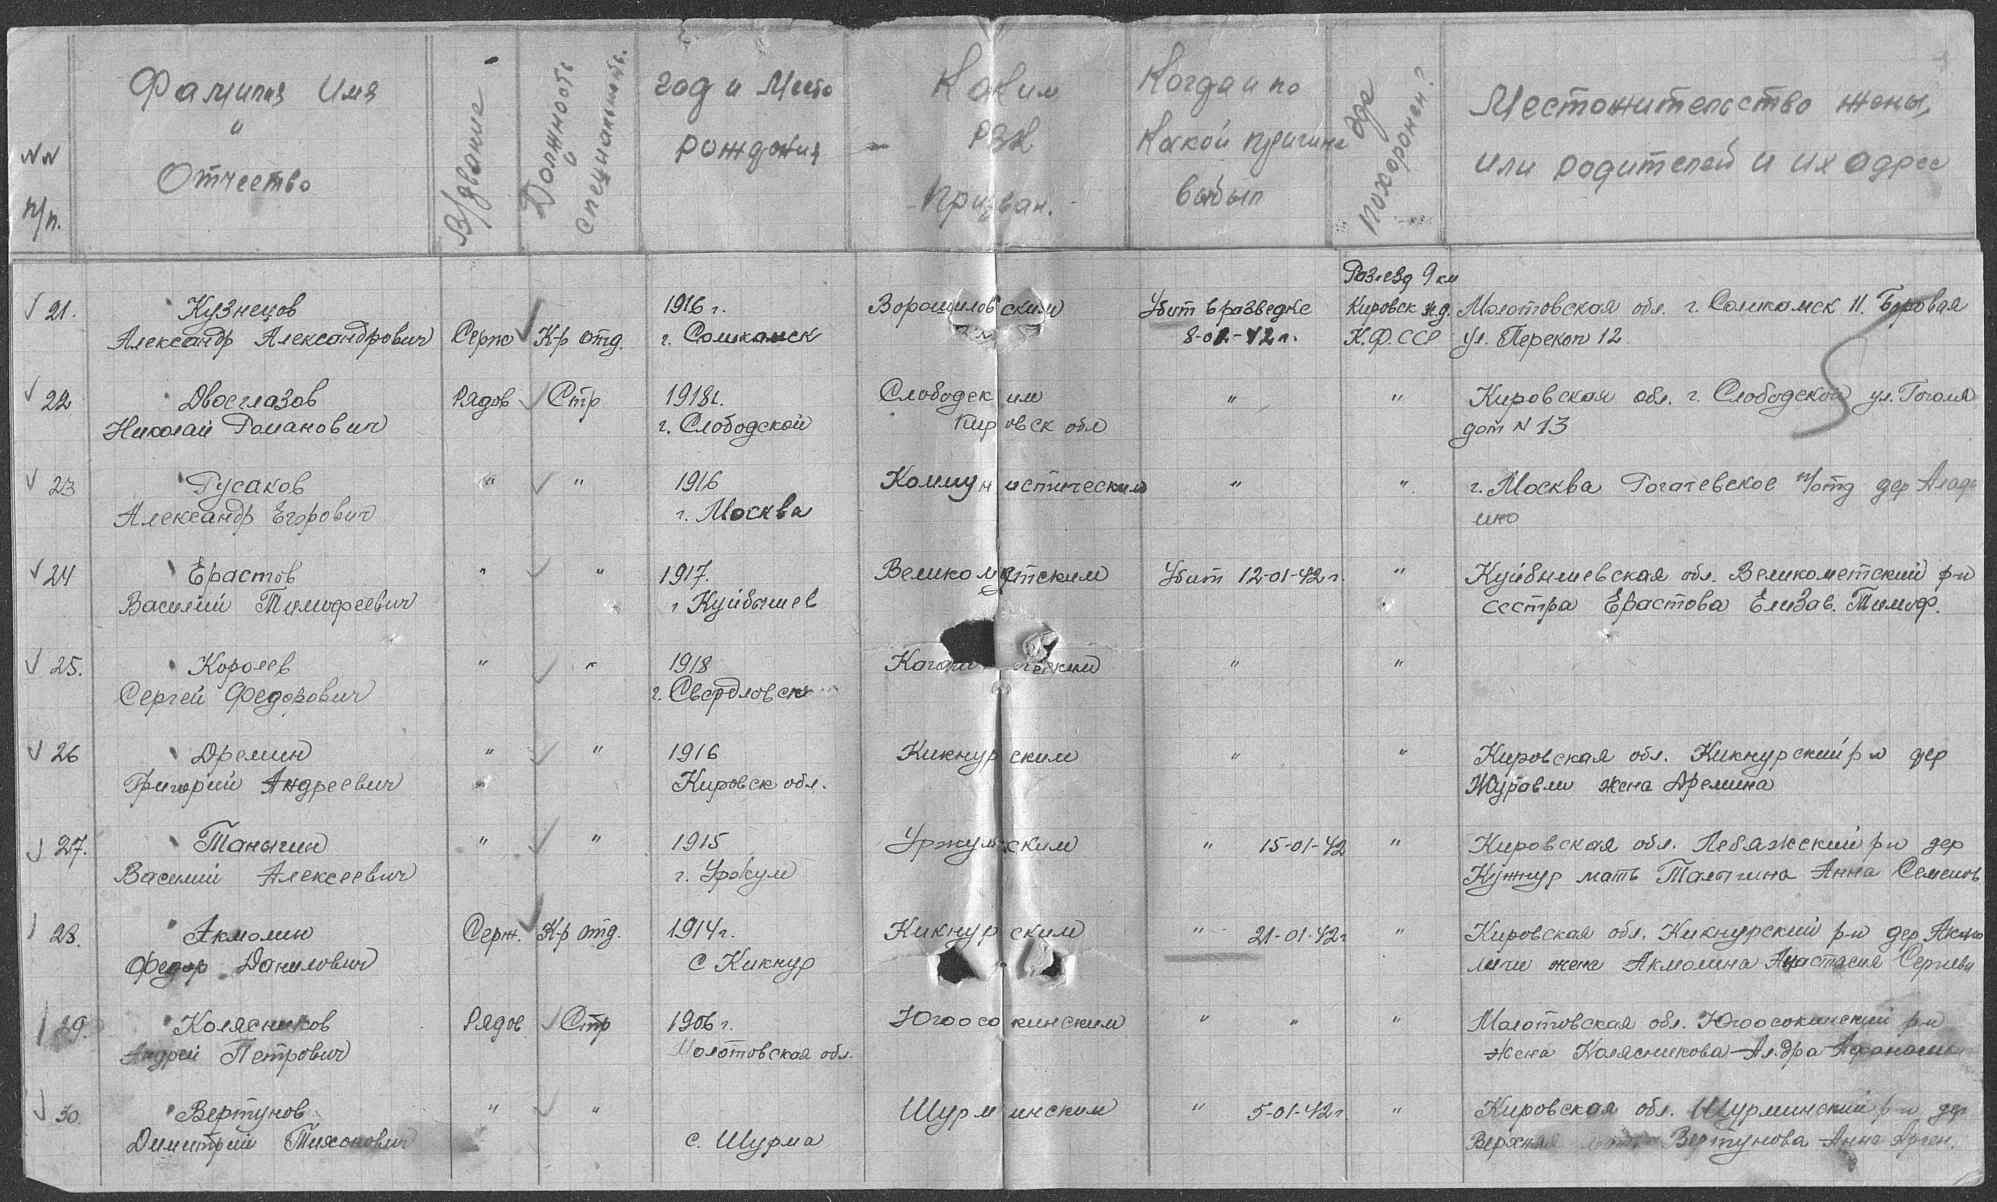 NN п/п.
Фамилия Имя
и
Отчество
В/звание
Должность и специальность.
год и Место
рождения
Каким
РВК
Призван.
Когда и по
какой причине
выбыл
Где похоронен?
Местожительство жены,
или родителей и их адрес
Разъезд 9 км
21. Кузнецов 1916 г. Ворошиловским Убит в разведке Кировск ж.д. Молотовская обл. г. Соликамск П. Боровая
Александр Александрович Серж К-р отд. г. Соликамск 8-02-42 г. К.Ф.ССР ул. Перекоп 12
22 Двоеглазов Рядов Стр 1918 г. Слободским " " Кировская обл. г. Слободской ул. Гоголя
Николай Романович г. Слободской Кировск обл дом N 13
23 Гусаков " " 1916 Коммунистическим " " г. Москва Рогачевское п/отд дер Алади
Александр Егорович г. Москва ино
24 Ерастов " " 1917. Убит 12-01-42 г. " Куйбышевская обл. р-н
Василий Тимофеевич г Куйбышев сестра Ерастова Елизав. Тимоф.
25. Королев " " 1918 " "
Сергей Федорович г. Свердловск
26 Дремин " " 1916 Кикнурским " " Кировская обл. Кикнурский р-н дер
Григорий Андреевич " Кировск обл. Журавли жена Дремина
27. Таныгин " " 1915 Уржумским " 15-01-42 " Кировская обл. Лебяжский р-н дер
Василий Алексеевич г. Уржум Кужнур мать Анна Семенов
28. Акмолин Серж. К-р отд. 1914 г. Кикнурским " 21-01-42 г " Кировская обл. Кикнурский р-н дер Акмо
Федор Данилович с Кикнур лини жена Акмолина Анастасия Сергеевн
29. Колясников Рядов Стр 1906 г. Югоосокинским " " " Молотовская обл. Югоосокинский р-н
Андрей Петрович Молотовская обл. жена Колясникова Ал.дра
30 Вертунов " " Шурминским " 5-01-42 г " Кировская обл. Шурминский р-н дер
Димитрий Тихонович с. Шурма Вертунова Анна